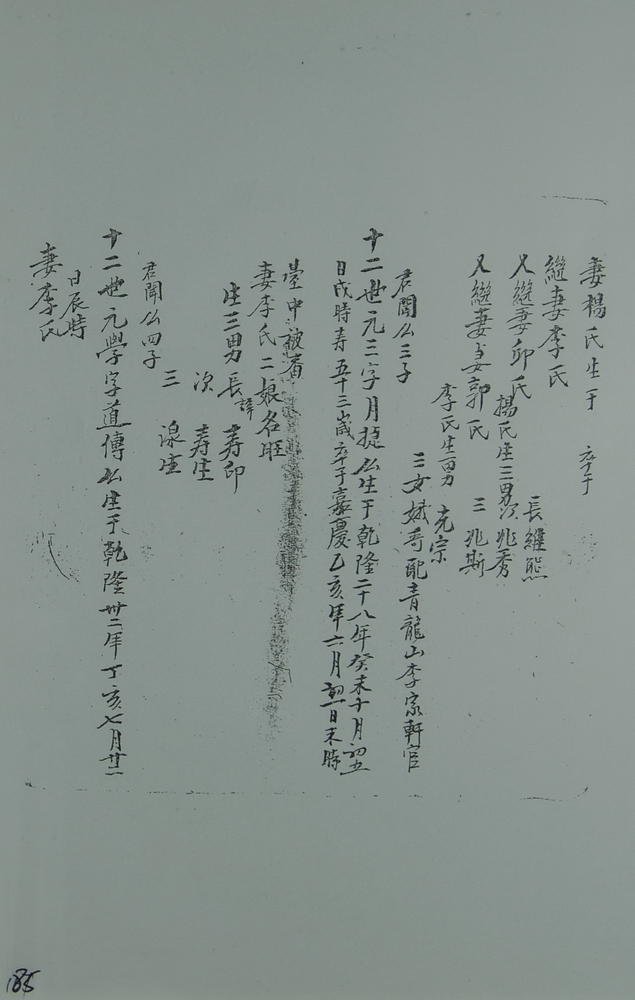 妻楊氏生于 卒于
繼妻李氏
又繼妻邱氏 楊氏生三男 長維熊
次兆秀
三兆斯
又繼妻郭氏
李氏生一男 克宗
三女娍哥配青龍山李宗軒官
君聞公三子
十二世元三字月捷公生于乾隆二十八年癸未十月初五
日戌時寿五十三歲卒于嘉慶乙亥年六月初一日未時
臺中被
妻李氏二娘名旺
生三男 長諱寿印
次 寿生
三 湶生
君聞公四子
十二世元學字道傳公生于乾隆卅二年丁亥七月廿二
日辰時
妻李氏
185